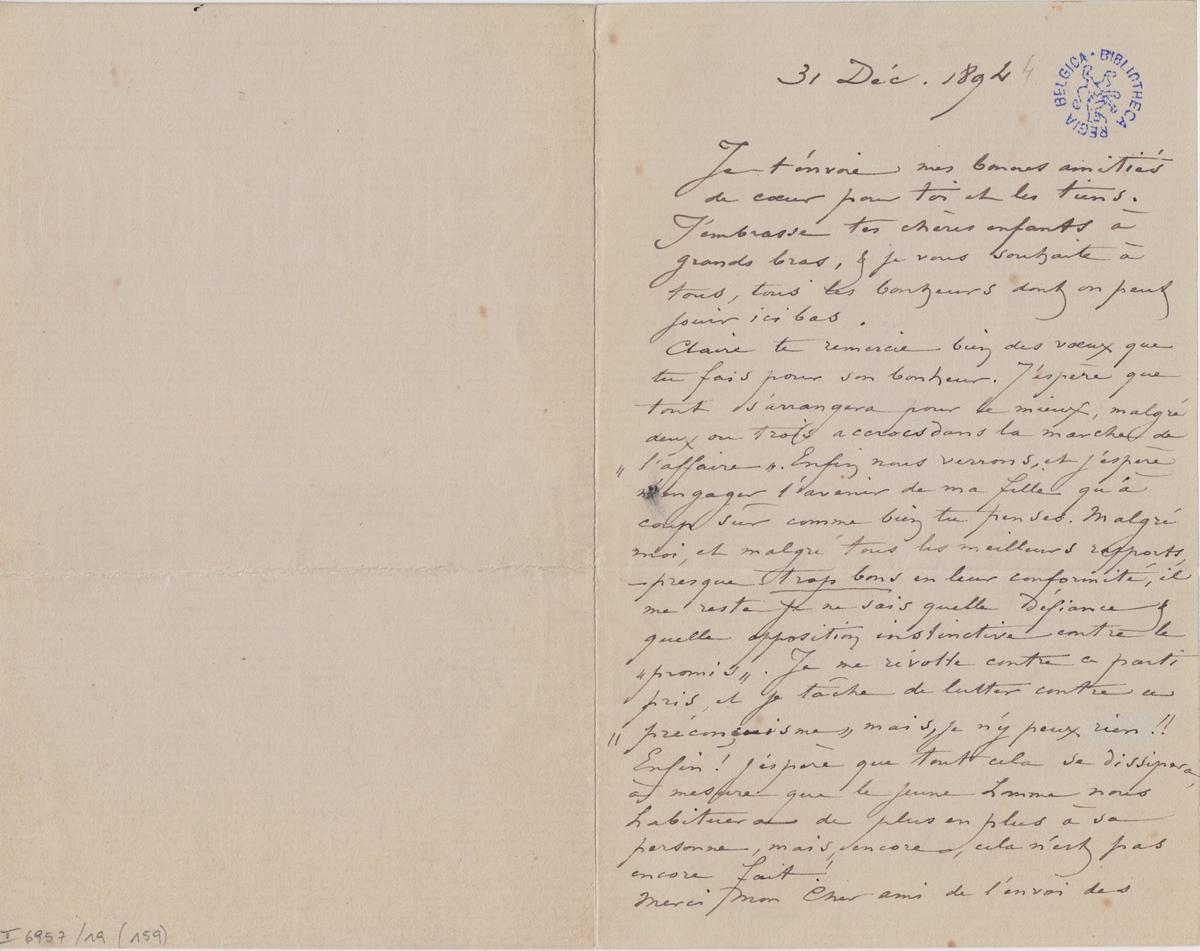 31 Déc. 1894
4
BIBLIOTHECA REGIA BELGICA
Je t'envoie mes bonnes amitiés
de cœur pour toi et les tiens.
J'embrasse tes chères enfants à
grands bras, & je vous souhaite à
tous, tous les bonheurs dont on peut
jouir ici bas.
Claire te remercie bien des vœux que
tu fais pour son bonheur. J'espère que
tout s'arrangera pour le mieux, malgré
deux ou trois accrocs dans la marche de
„ l'affaire „. Enfin nous verrons, et j'espère
n'engager l'avenir de ma fille qu'à
coup sûr comme bien tu penses. Malgré
moi, et malgré tous les meilleurs rapports,
– presque trop bons en leur conformité, il
me reste je ne sais quelle Défiance &
quelle opposition instinctive contre le
„promis„. Je me révolte contre ce parti
pris, et je tâche de lutter contre ce
„ préconçuisme „ mais, je n'y peux rien !!
Enfin ! j'espère que tout cela se dissipera,
à mesure que le jeune homme nous
habituera de plus en plus à sa
personne, mais, encore, cela n'est pas
encore fait !
Merci Mon Cher ami de l'envoi des
II 6957/19 (159)